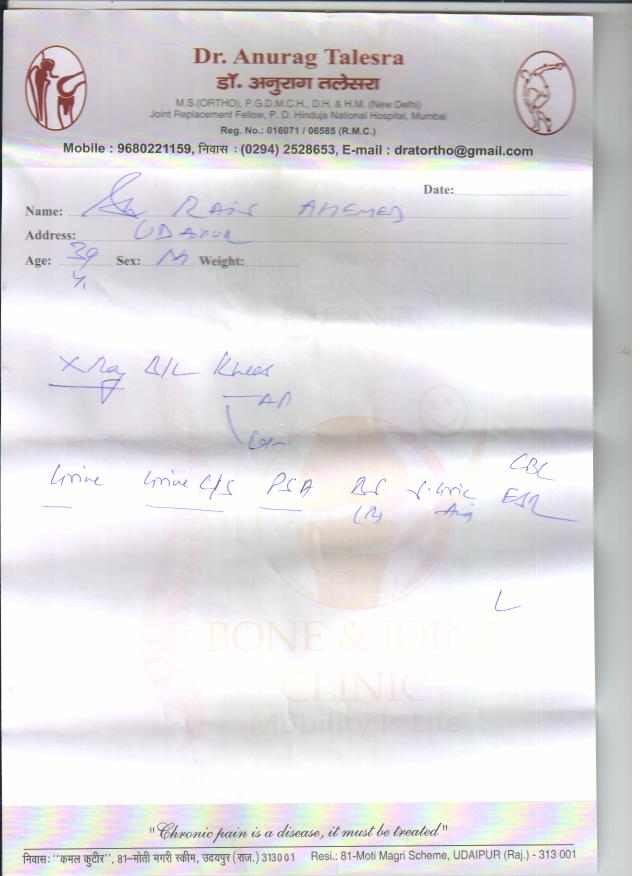 Dr. Anurag Talesra
डॉ. अनुराग तलेसरा
M.S.(ORTHO), P.G.D.M.C.H., D.H. & H.M. (New Delhi)
Joint Replacement Fellow, P. D. Hinduja National Hospital, Mumbai
Reg. No.: 016071 / 06585 (R.M.C.)
Mobile : 9680221159, निवास : (0294) 2528653, E-mail : dratortho@gmail.com
Date:
Name: RAIS AHEMED
Address: UDAIPUR
Age: 39 Sex: M Weight:
X Ray B/L Knees
AP
Urine Urine C/S PSA BS S. Uric CBC
(R) Acid ESR
BONE & JOINT
CLINIC
Mobility is Life
"Chronic pain is a disease, it must be treated"
निवास: "कमल कुटीर", 81-मोती मगरी स्कीम, उदयपुर (राज.) 313001 Resi.: 81-Moti Magri Scheme, UDAIPUR (Raj.) - 313 001